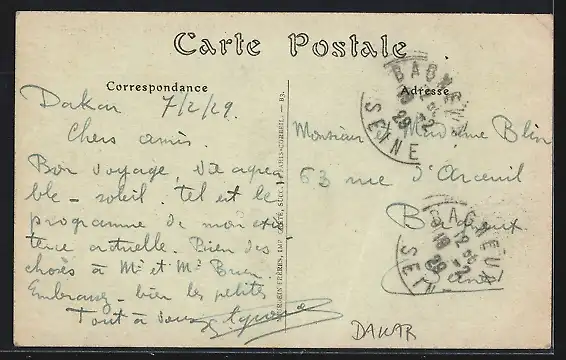 Carte Postale
Correspondance
Adresse
Dakar 7/2/29.
Chers amis
Bon voyage, vie agréa
ble - soleil. Tel est le
programme de mon exis
tence actuelle. Bien des
choses à Mr et Me
Embrassez - bien les petites
Tout à vous
Monsieur et Madame Blin
63 rue d'Arcueil
BAGNEUX
SEINE
BAGNEUX
SEINE
DAKAR